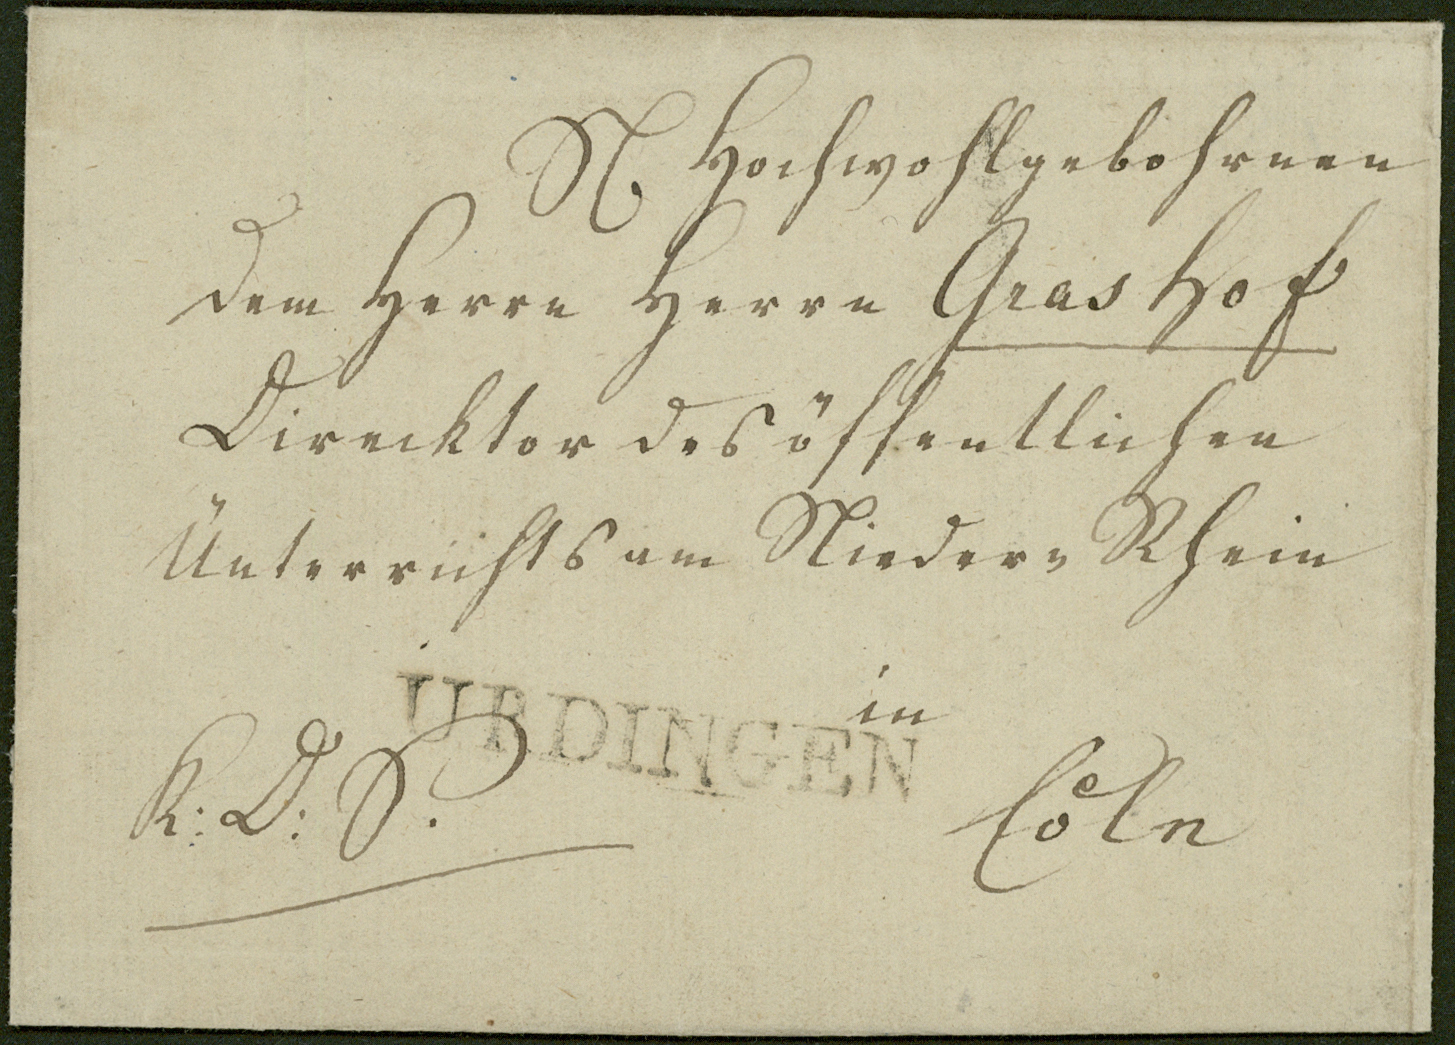 Hochwohlgebohrnen
dem Herrn Herrn Gras Hof
Direcktor des öffentlichen
Unterrichts am Nieder Rhein
in
URDINGEN
K: D: S.
Cöln